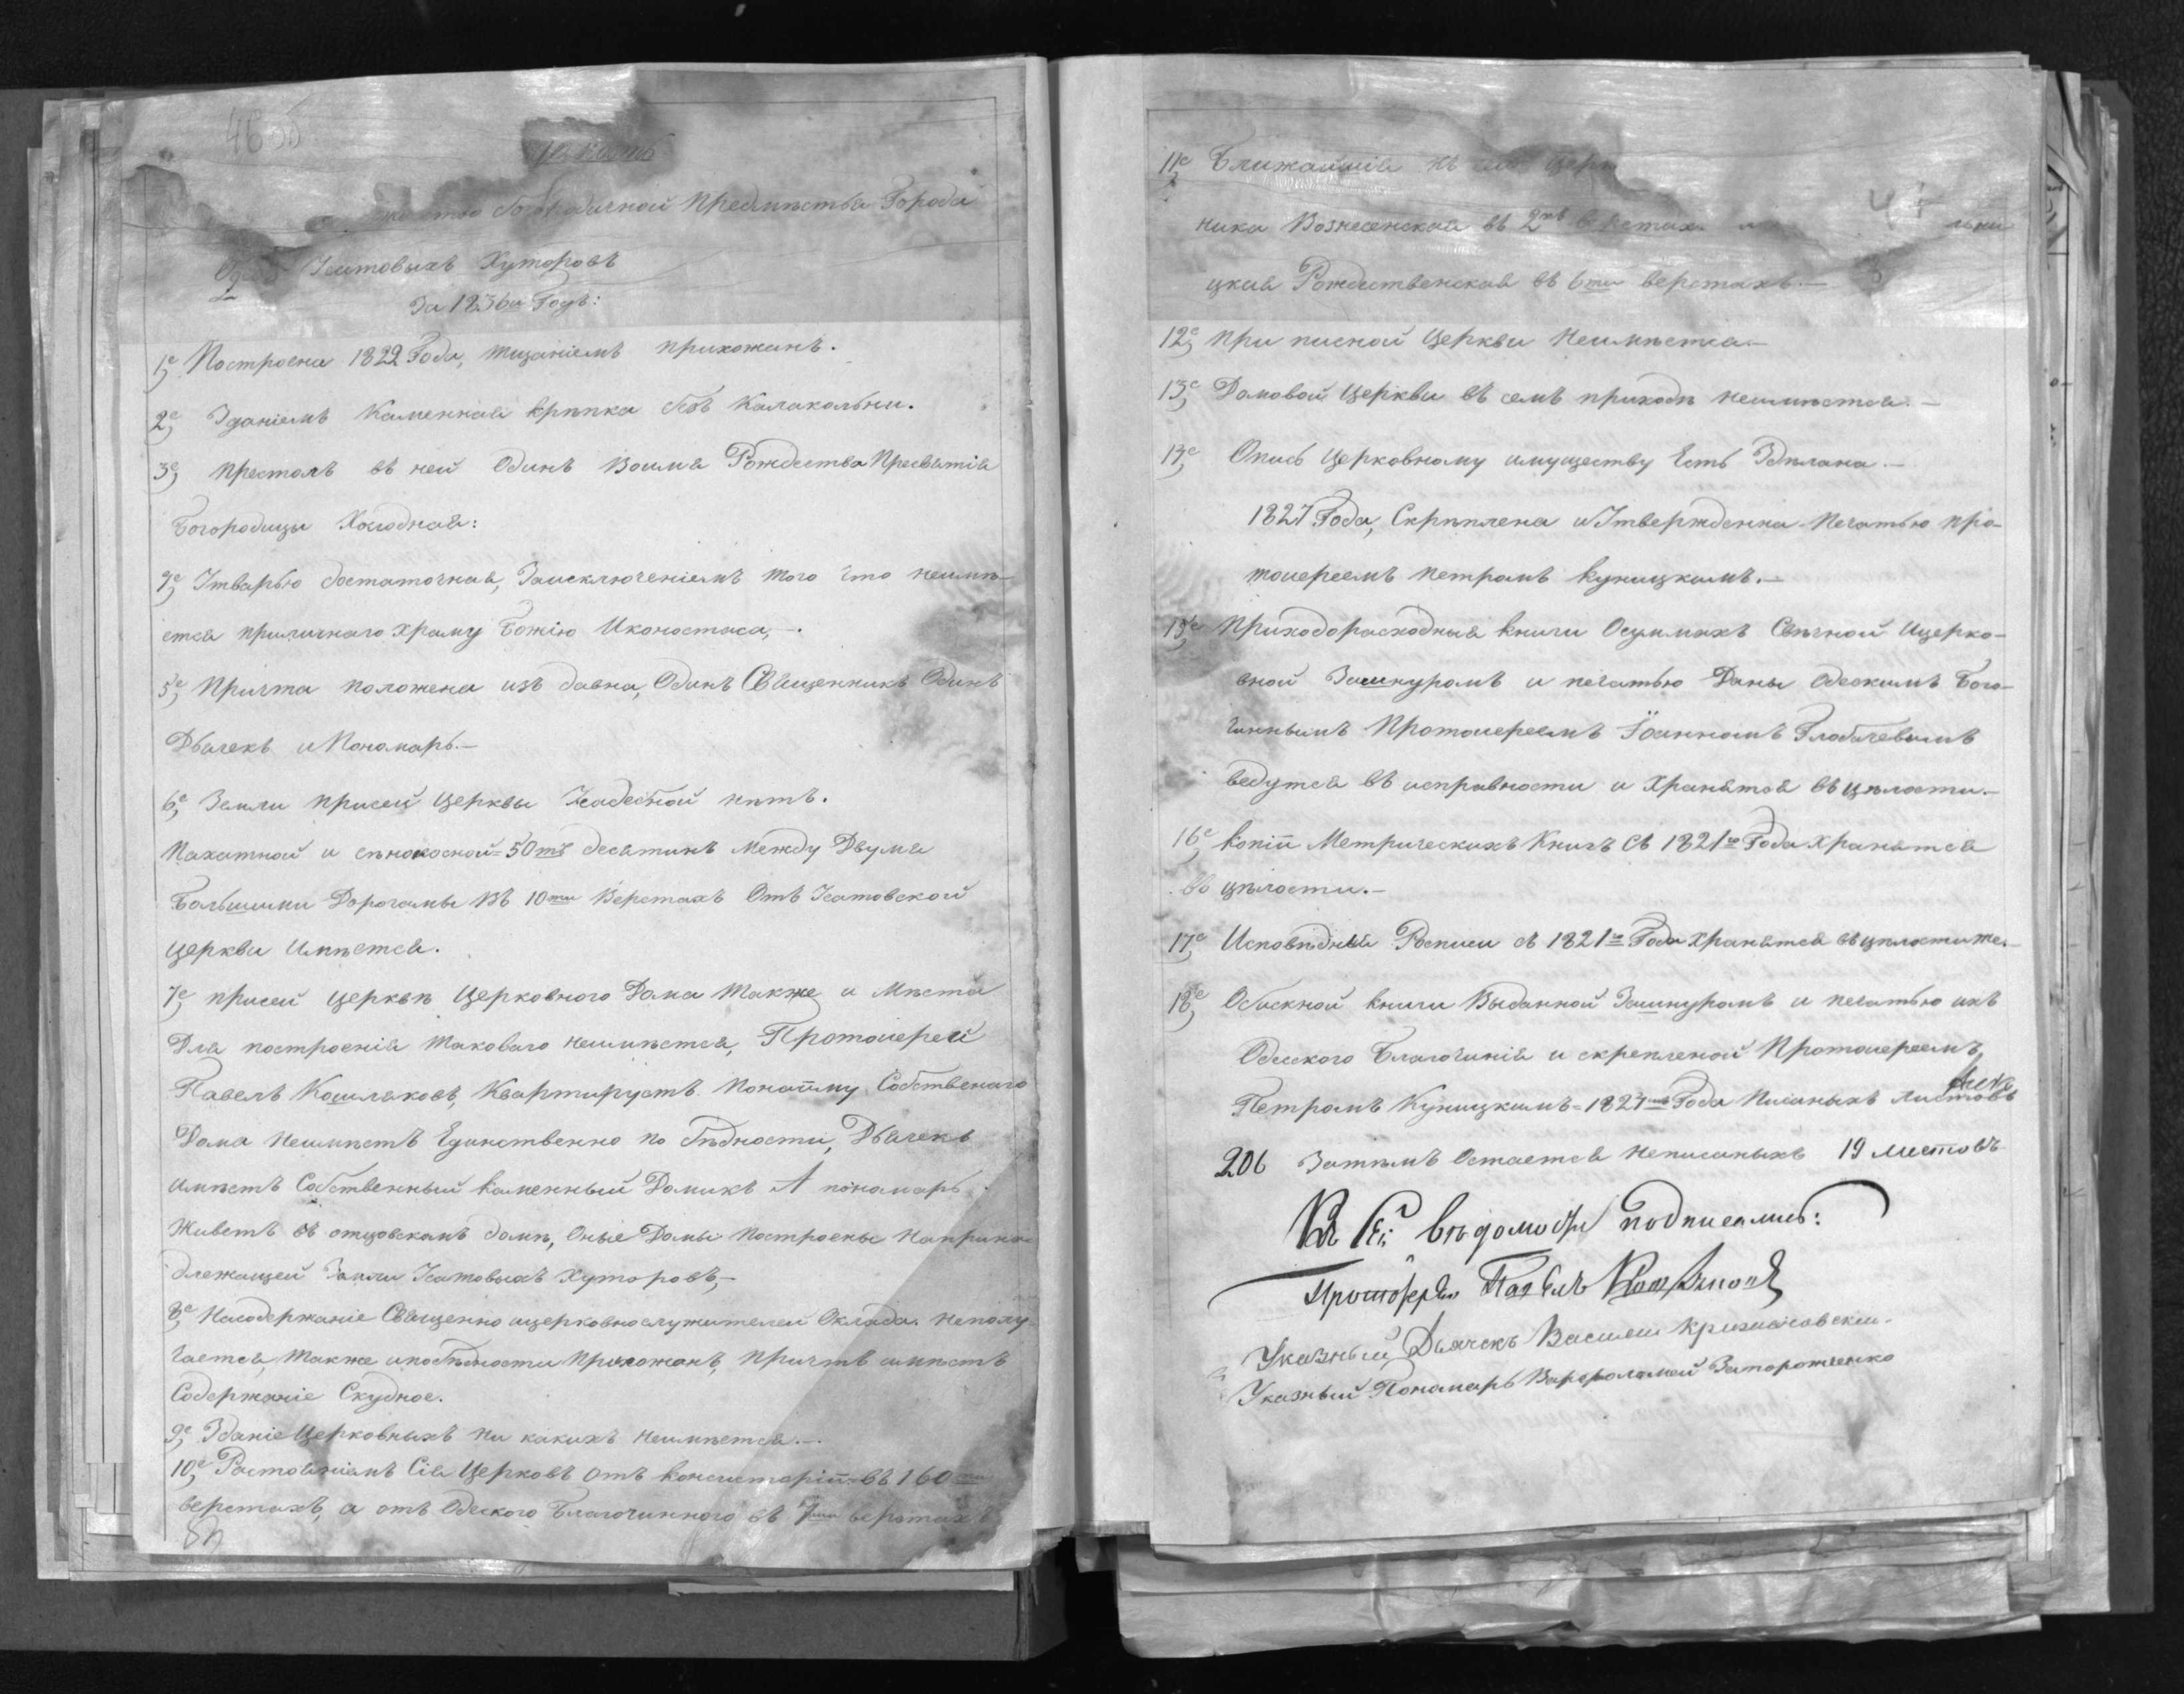 46об
Богородичной Предместья Города
Усатовыхъ Хуторовъ
За 1836й Годъ:
1е, Построена 1822 Года, тщаніемъ прихожанъ.
2е, Зданіемъ Каменная крѣпка безъ Калакольни.
3е, Престолъ въ ней Одинъ Воимя Рождества Пресвятія
Богородицы Холодная:
4е, Утварью достаточная, Заисключеніемъ того что неимѣ-
етса приличнаго храму Божію Иконостаса,-.
5е, Причта положена изъ давна, Одинъ Священникъ Одинъ
Дьячекъ и Пономарь.-
6е, Земли присей церквы Усадебной нѣтъ.
Пахатной и сѣнокосной=50тъ десятинъ между Двумя
Большими Дорогамы Въ 10ти Верстахъ Отъ Усатовской
церкви Имѣется.
7е, присей церквѣ Церковного Дома также и Мѣста
Для построенія таковаго неимѣется, Протоиерей
Павелъ Кошляковъ, Квартируетъ Понайму Собственаго
Дома неимѣетъ Единственно по бѣдности, Дьячекъ
имѣетъ Собственный каменный Домикъ А пономарь
Живетъ въ отцовскомъ домѣ, Оные Домы Построены Напринад
длежащей Земли Усатовыхъ Хуторовъ,-
8е, Насодержаніе Священно ицерковнослужителей Оклада. Неполу
чается, также ипобѣдности Прихожанъ, Причтъ имѣетъ
Содержаніе Скудное.
9е, Зданіе Церковныхъ Ни какихъ неимѣется.-.
10е, Растояніемъ Сія Церковъ отъ консисторіи въ 160ти
верстахъ, а отъ Одеского Благочинного въ 7ми верстахъ
11е, Ближайшія къ сей Церк
ника Вознесенская въ 2хъ верстахъ
цкая Рождественская въ 6ти верстахъ.-
12е, При писной Церкви Неимѣетса.-
13е, Домовой Церкви въ семъ приходѣ неимѣется.-
14е, Опись Церковному имуществу Есть Здѣлана.-
1827 Года, Скрѣплена иУтвержденна Печатью про-
тоиереемъ Петромъ Куницкимъ.-
15е, Приходорасходныя книги Осуммахъ Свѣчной Ицерко-
вной Зашнуромъ и печатью Даны Одескимъ Благо-
чиннымъ Протоиереемъ Іоанномъ Глобачевымъ
ведутся въ исправности и Хранятся въ цѣлости.-
16е, копіи Метрическихъ Книгъ Съ 1821го Года хранятся
въ цѣлости.-
17е, Исповѣдныя Росписи съ 1821го Года хранятся въ цѣлостиже.-
18е, Обыскной книги Выданной Зашнуромъ и печатью изъ
Одесского Благочинія и скрепленой Протоиереемъ
Петромъ Куницкимъ=1827мъ Года Писаныхъ листовъ
206 Затѣмъ Остается неписаныхъ 19 листовъ
Къ сей вѣдомости подписались:
Протоіерей Павелъ Кошляковъ
Указный Дьячекъ Василий Крижановский.
Указный Пономарь Варфоломей Запорожченко